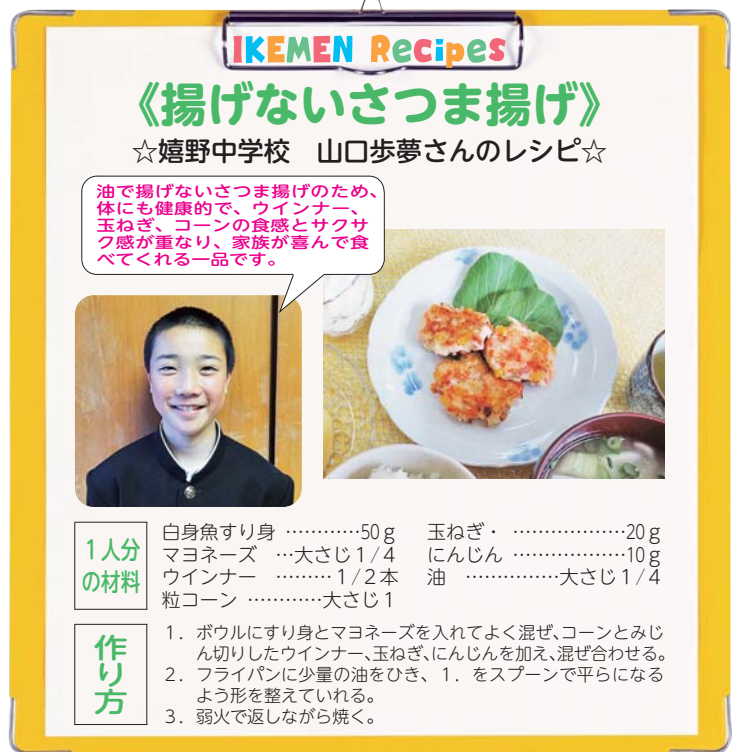 IKEMEN Recipes
《揚げないさつま揚げ》
☆嬉野中学校　山口歩夢さんのレシピ☆
油で揚げないさつま揚げのため、
体にも健康的で、ウインナー、
玉ねぎ、コーンの食感とサクサ
ク感が重なり、家族が喜んで食
べてくれる一品です。
1人分
の材料
白身魚すり身 …………50g
マヨネーズ　…大さじ1/4
ウインナー　………1/2本
粒コーン …………大さじ1
玉ねぎ・ ………………20g
にんじん ………………10g
油　……………大さじ1/4
作り方
1．ボウルにすり身とマヨネーズを入れてよく混ぜ、コーンとみじ
ん切りしたウインナー、玉ねぎ、にんじんを加え、混ぜ合わせる。
2．フライパンに少量の油をひき、1．をスプーンで平らになる
よう形を整えていれる。
3．弱火で返しながら焼く。